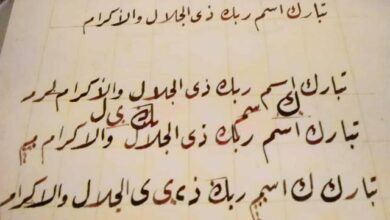 تبارك اسم ربك ذى الجلال والأكرام
تبارك اسم ربك ذى الجلال والأكرام
ك اسم ربك ى ل
تبارك اسم ربك ذى الجلال والأكرام
تبارك ك اسم ربك ذى ى الجلال والاكرام